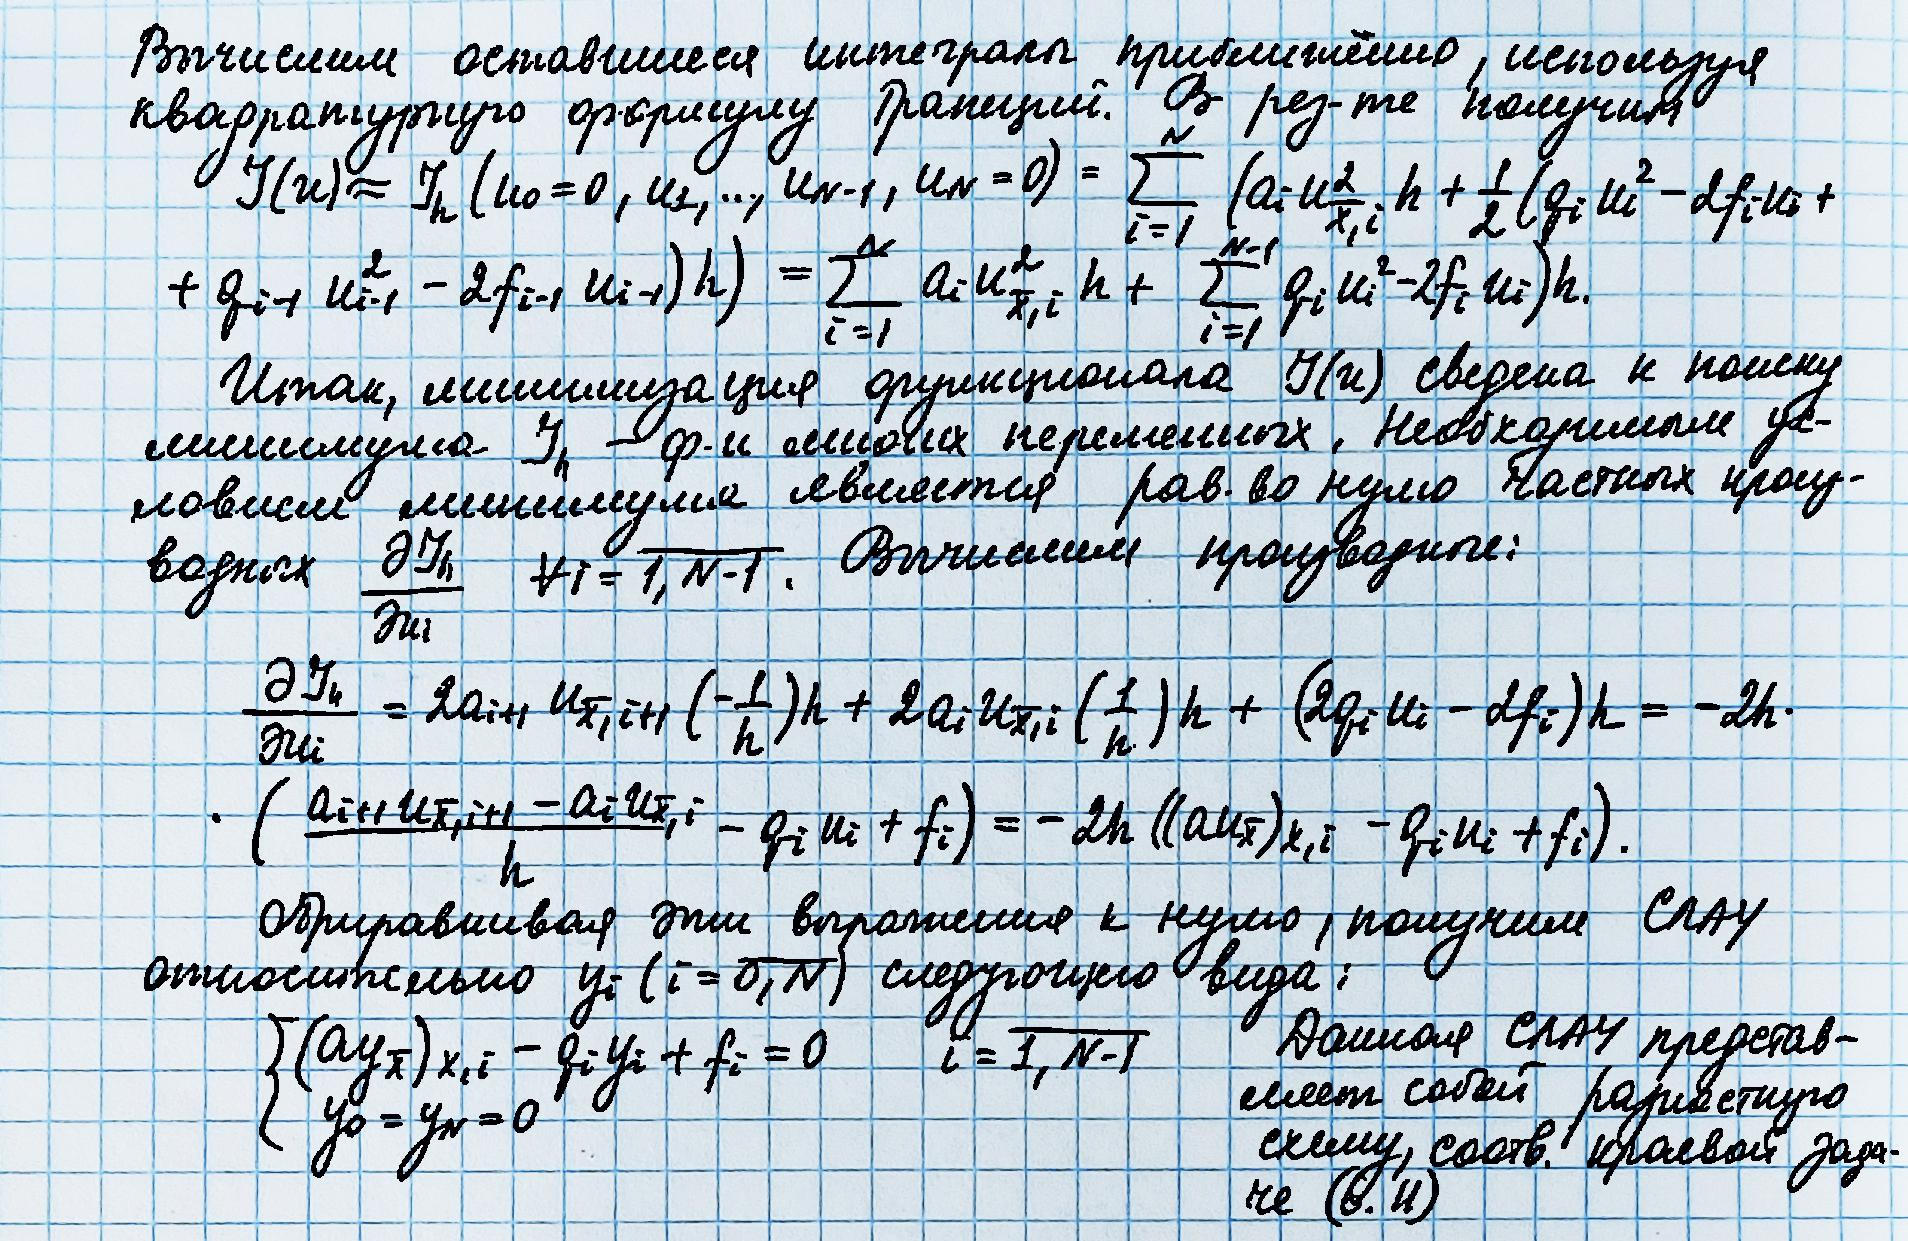 Вычислим оставшиеся интегралы приближённо, используя
квадратурную формулу Трапеций. В рез-те получим
J(u) ≈ J_h (u_0 = 0, u_1, .., u_{N-1}, u_N = 0) = \sum_{i=1}^{N} (a_i u_{\bar{x},i}^2 h + \frac{1}{2} (q_i u_i^2 - 2f_i u_i +
+ q_{i-1} u_{i-1}^2 - 2f_{i-1} u_{i-1}) h) = \sum_{i=1}^{N} a_i u_{\bar{x},i}^2 h + \sum_{i=1}^{N-1} q_i u_i^2 - 2f_i u_i) h.
Итак, минимизация функционала J(u) сведена к поиску
минимума J_h – ф-и многих переменных. Необходимым ус-
ловием минимума является рав-во нулю частных произ-
водных \frac{∂J_h}{∂u_i} ∀i = \overline{1, N-1}. Вычислим производные:
\frac{∂J_h}{∂u_i} = 2a_{i+1} u_{\bar{x},i+1} (-\frac{1}{h}) h + 2a_i u_{\bar{x},i} (\frac{1}{h}) h + (2q_i u_i - 2f_i) h = -2h·
· (\frac{a_{i+1} u_{\bar{x},i+1} - a_i u_{\bar{x},i}}{h} - q_i u_i + f_i) = -2h ((a u_{\bar{x}})_{x,i} - q_i u_i + f_i).
Приравнивая эти выражения к нулю, получим СЛАУ
относительно y_i (i = \overline{0, N}) следующего вида:
{ (a y_{\bar{x}})_{x,i} - q_i y_i + f_i = 0 i = \overline{1, N-1}
y_0 = y_N = 0
Данная СЛАУ представ-
ляет собой разностную
схему, соотв. краевой зада-
че